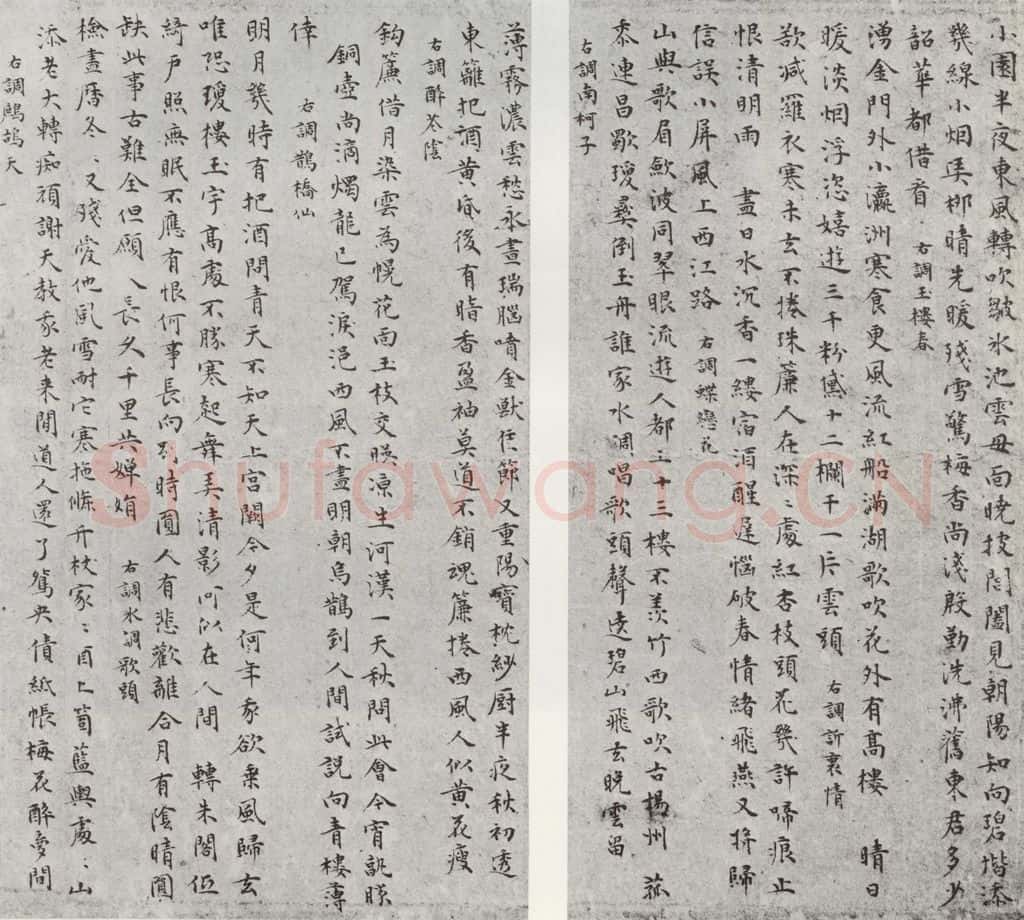 小園半夜東風轉吹皺冰池雲母面曉披閶闔見朝陽知向碧堦添
幾線小烟弄柳晴先暖殘雪驚梅香尚淺殷勤洗沸舊東君多少
韶華都借看 右調玉樓春
湧金門外小瀛洲寒食更風流紅船滿湖歌吹花外有高樓 晴日
暖淡烟浮恣嬉遊三千粉黛十二欄干一片雲頭 右調訴衷情
欲減羅衣寒未去不捲珠簾人在深〻處紅杏枝頭花幾許啼痕止
恨清明雨 盡日水沉香一縷宿酒醒遲惱破春情緒飛燕又將歸
信誤小屏風上西江路 右調蝶戀花
山與歌眉歛波同翠眼流遊人都上十三樓不羨竹西歌吹古揚州 菰
黍連昌歜瓊彝倒玉舟誰家水調唱歌頭聲遶碧山飛去晚雲留
右調南柯子
薄霧濃雲愁永晝瑞腦噴金獸佳節又重陽寶枕紗厨半夜秋初透
東籬把酒黃昏後有暗香盈袖莫道不銷魂簾捲西風人似黃花瘦
右調醉花陰
鈎簾借月染雲為幌花面玉枝交暎涼生河漢一天秋問此會今宵孰勝
銅壺尚滴燭龍已駕淚浥西風不盡明朝烏鵲到人間試説向青樓薄
倖 右調鵲橋仙
明月幾時有把酒問青天不知天上宮闕今夕是何年我欲乘風歸去
唯恐瓊樓玉宇高處不勝寒起舞弄清影何似在人間 轉朱閣低
綺戶照無眠不應有恨何事長向別時圓人有悲歡離合月有陰晴圓
缺此事古難全但願人長久千里共嬋娟 右調水調歌頭
檢盡曆冬〻又殘愛他風雪耐它寒拖條竹杖家〻酒上箇籃輿處〻山
添老大轉痴頑謝天教我老來閒道人還了鴛鴦債紙帳梅花醉夢間
右調鷓鴣天
Shufawang.CN